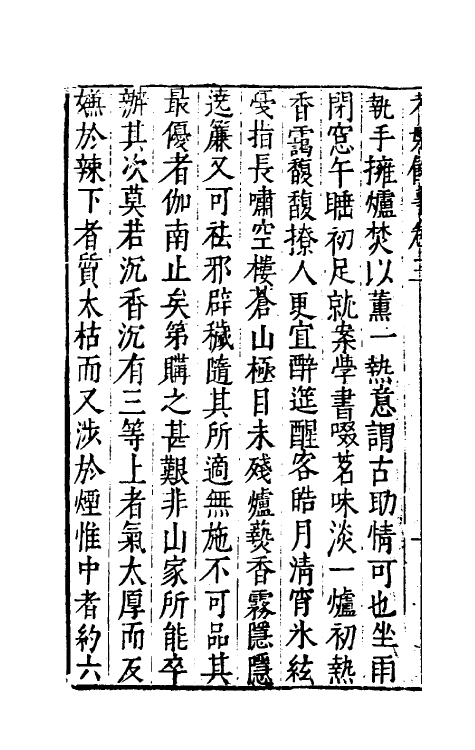 執手擁爐焚以薰一熱意謂古助情可也坐雨
閉窓午睡初足就案學書啜茗味淡一爐初熱
香靄馥馥撩人更宜醉筵醒客皓月清宵氷絃
戞指長嘯空樓蒼山極目未殘爐爇香霧隱隱
遶簾又可祛邪辟穢隨其所適無施不可品其
最優者伽南止矣第購之甚艱非山家所能卒
辦其次莫若沉香沉有三等上者氣太厚而反
嫌於辣下者質太枯而又涉於煙惟中者約六